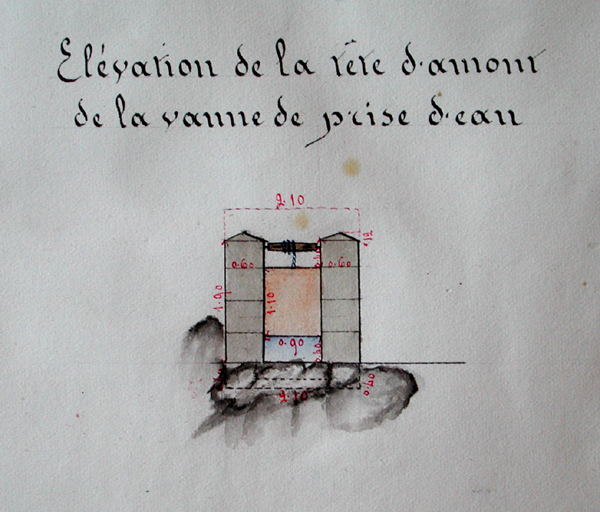 Elévation de la tête d'amont
de la vanne de prise d'eau
2.10
12
0.60 0.40 0.60
1.90 1.10
0.90 0.40
2.10 0.40